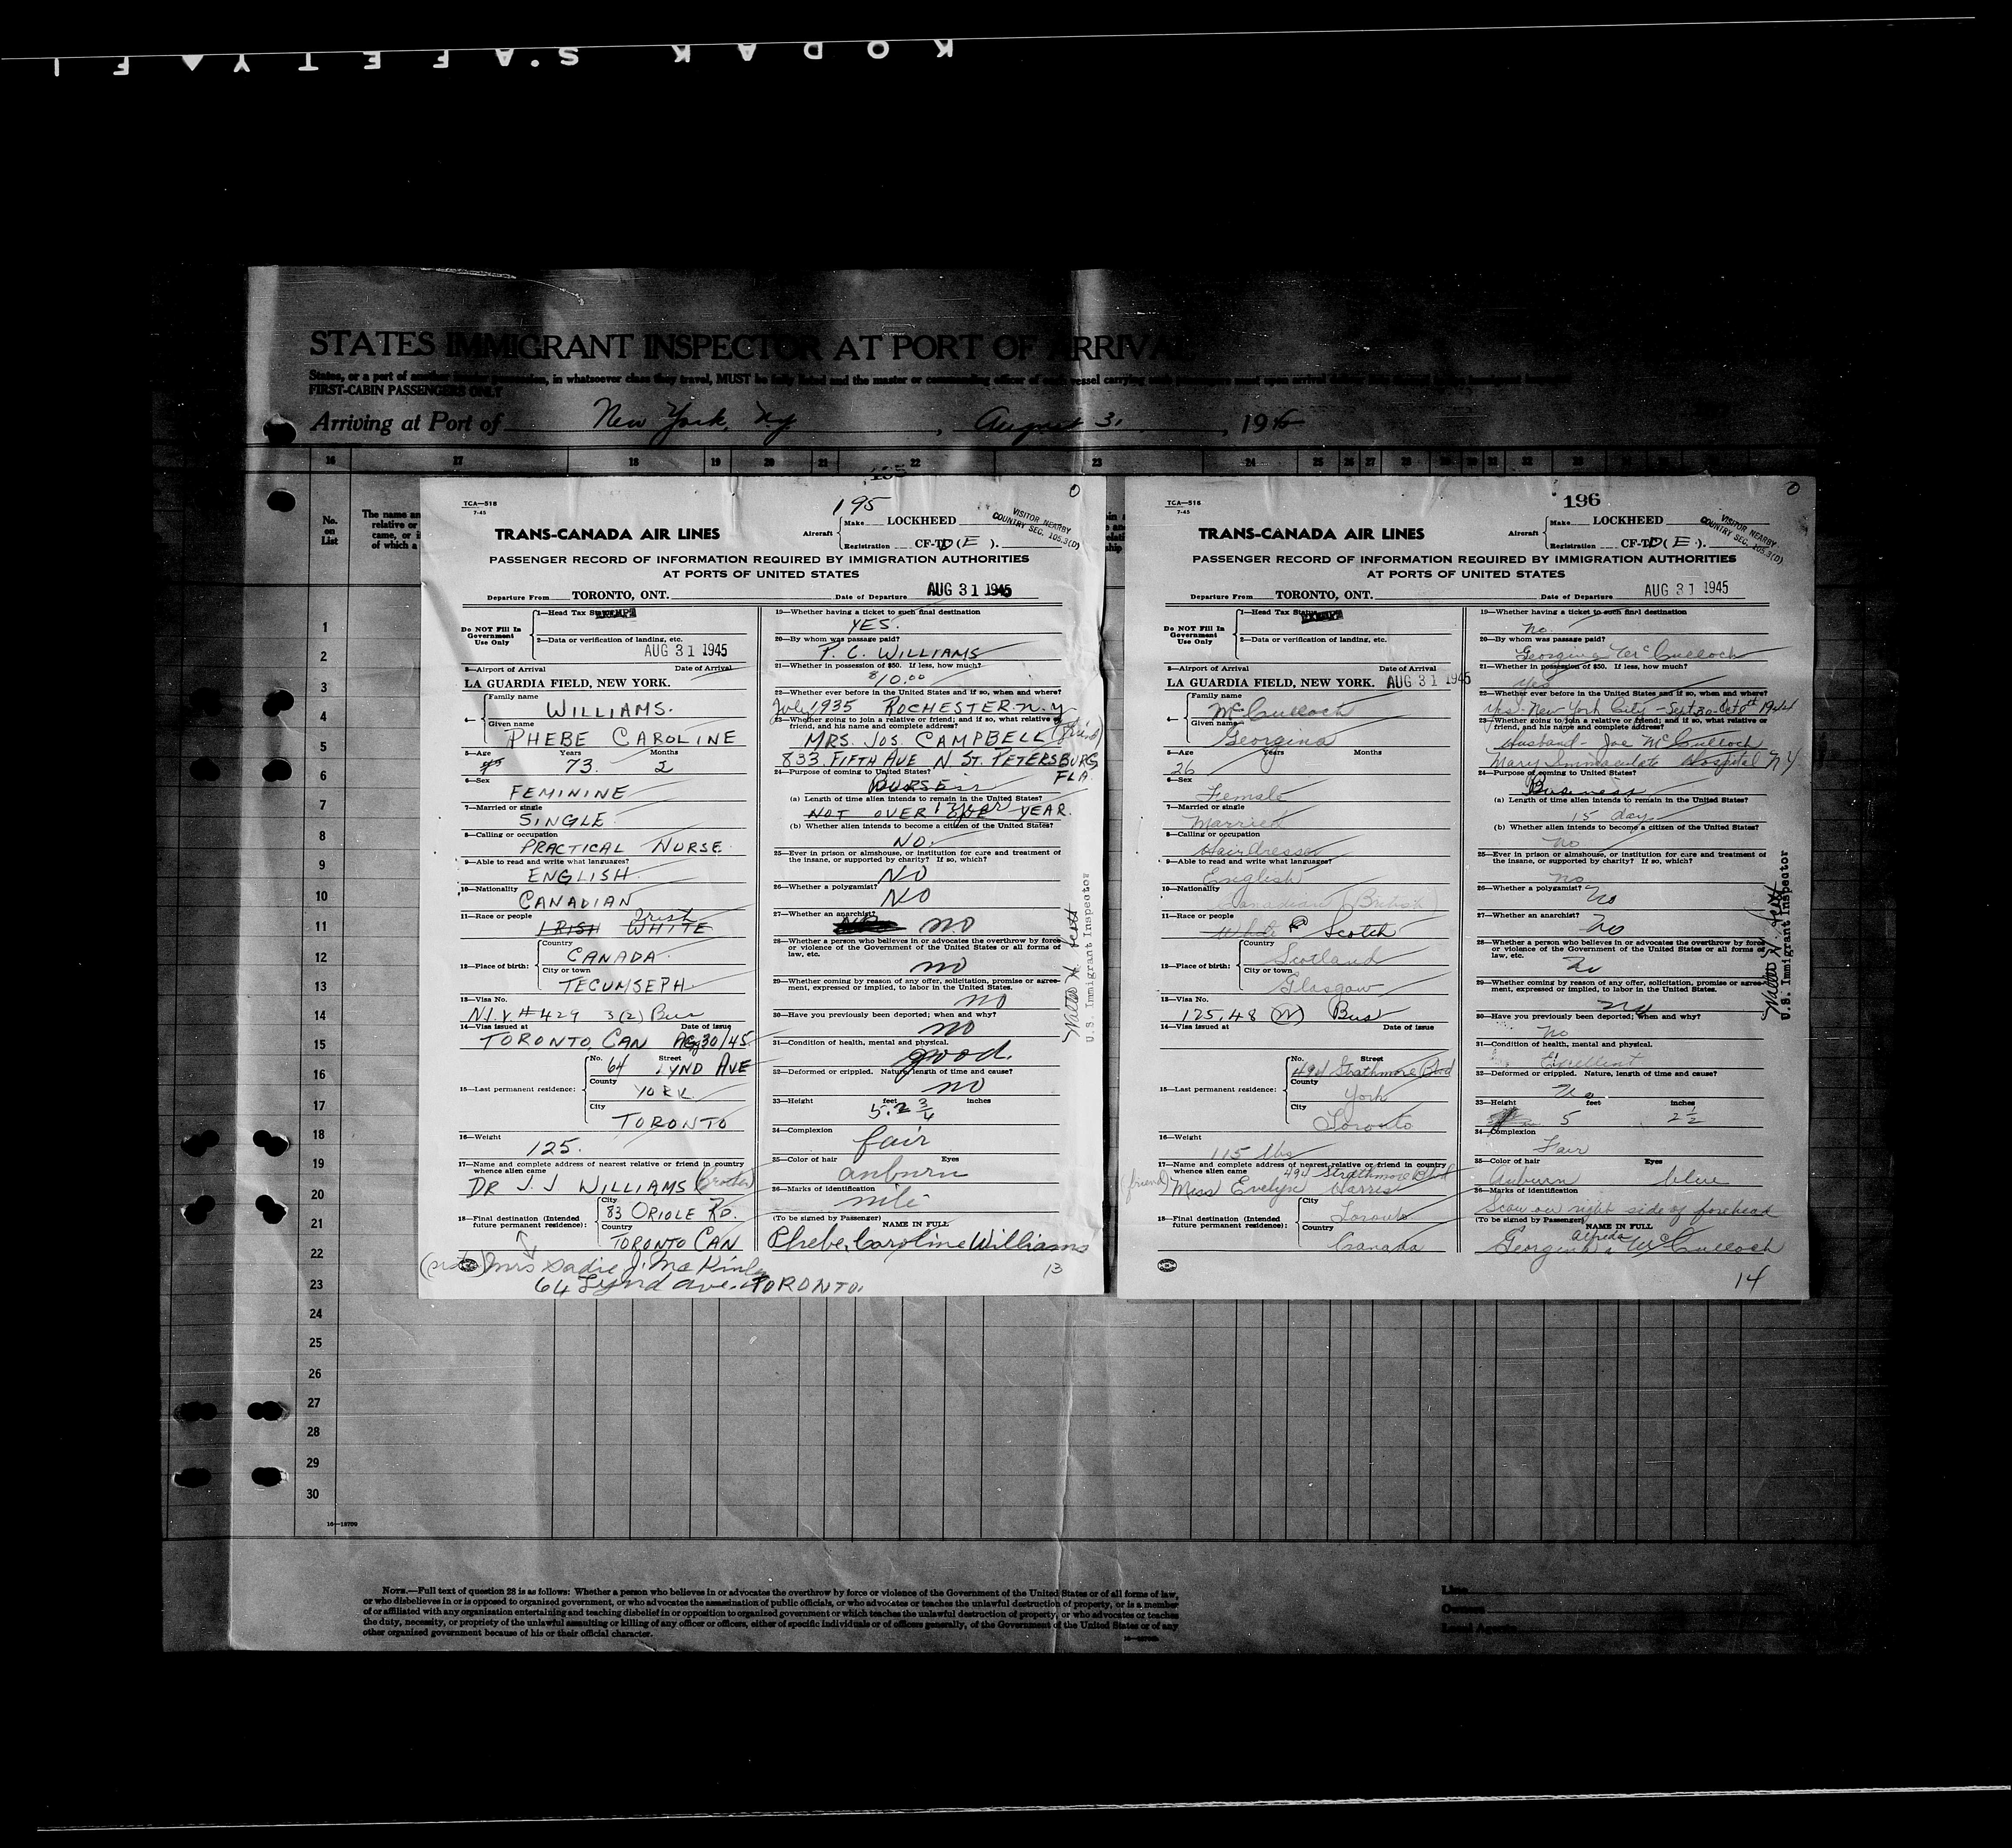 KODAK SAFETY F
STATES IMMIGRANT INSPECTOR AT PORT OF ARRIVAL
FIRST-CABIN PASSENGERS ONLY
Arriving at Port of New York, N.Y. , August 31 , 1945
16 17 18 19 20 21 22 23 24 25 26 27
No. on List
TCA—518
7-45
195
TRANS-CANADA AIR LINES
Aircraft
Make LOCKHEED
Registration CF-TD ( E ).
VISITOR NEARBY
COUNTRY SEC. 105.3(D)
PASSENGER RECORD OF INFORMATION REQUIRED BY IMMIGRATION AUTHORITIES
AT PORTS OF UNITED STATES
Departure From TORONTO, ONT. Date of Departure AUG 31 1945
Do NOT Fill In Government Use Only
1—Head Tax Status
2—Data or verification of landing, etc.
AUG 31 1945
3—Airport of Arrival Date of Arrival
LA GUARDIA FIELD, NEW YORK.
4— Family name
WILLIAMS.
Given name
PHEBE CAROLINE
5—Age Years Months
73. 2
6—Sex
FEMININE
7—Married or single
SINGLE
8—Calling or occupation
PRACTICAL NURSE
9—Able to read and write what languages?
ENGLISH
10—Nationality
CANADIAN
11—Race or people Irish
IRISH WHITE
12—Place of birth: Country
CANADA
City or town
TECUMSEPH
13—Visa No.
N.I.V. # 429 3(2) Bus
14—Visa issued at Date of issue
TORONTO, CAN 30/45
15—Last permanent residence: No. Street
64 LYND AVE
County
YORK
City
TORONTO
16—Weight
125.
17—Name and complete address of nearest relative or friend in country whence alien came
DR J. J WILLIAMS (Brother)
18—Final destination (Intended future permanent residence): City
83 ORIOLE RD.
Country
TORONTO CAN
Mrs Sadie J. McKinley
64 Lynd ave. TORONTO.
19—Whether having a ticket to such final destination
YES.
20—By whom was passage paid?
P. C. WILLIAMS
21—Whether in possession of $50. If less, how much?
$10.00
22—Whether ever before in the United States and if so, when and where?
July 1935 ROCHESTER N.Y
23—Whether going to join a relative or friend; and if so, what relative or friend, and his name and complete address?
MRS. JOS CAMPBELL (Friend)
833 FIFTH AVE N ST. PETERSBURG
FLA.
24—Purpose of coming to United States?
(a) Length of time alien intends to remain in the United States?
NOT OVER 1 year YEAR.
(b) Whether alien intends to become a citizen of the United States?
NO.
25—Ever in prison or almshouse, or institution for care and treatment of the insane, or supported by charity? If so, which?
NO
26—Whether a polygamist?
NO
27—Whether an anarchist?
no
28—Whether a person who believes in or advocates the overthrow by force or violence of the Government of the United States or all forms of law, etc.
no
29—Whether coming by reason of any offer, solicitation, promise or agreement, expressed or implied, to labor in the United States.
no
30—Have you previously been deported; when and why?
no
31—Condition of health, mental and physical.
good.
32—Deformed or crippled. Nature, length of time and cause?
no
33—Height feet inches
5. 2 3/4
34—Complexion
fair
35—Color of hair Eyes
auburn
36—Marks of identification
(To be signed by Passenger) NAME IN FULL
Phebe. Caroline Williams
13
Walter H. Scott
U.S. Immigrant Inspector
TCA—518
7-45
196
TRANS-CANADA AIR LINES
Aircraft
Make LOCKHEED
Registration CF-TD ( E ).
VISITOR NEARBY
COUNTRY SEC. 105.3(D)
PASSENGER RECORD OF INFORMATION REQUIRED BY IMMIGRATION AUTHORITIES
AT PORTS OF UNITED STATES
Departure From TORONTO, ONT. Date of Departure AUG 31 1945
Do NOT Fill In Government Use Only
1—Head Tax Status
2—Data or verification of landing, etc.
3—Airport of Arrival Date of Arrival
LA GUARDIA FIELD, NEW YORK. AUG 31 1945
4— Family name
McCulloch
Given name
Georgina
5—Age Years Months
26
6—Sex
Female
7—Married or single
Married
8—Calling or occupation
Hairdresser
9—Able to read and write what languages?
English
10—Nationality
Canadian (British)
11—Race or people
White Scotch
12—Place of birth: Country
Scotland
City or town
Glasgow
13—Visa No.
175.48 Bus
14—Visa issued at Date of issue
15—Last permanent residence: No. Street
494 Strathmore Blvd
County
York
City
Toronto
16—Weight
115 lbs
17—Name and complete address of nearest relative or friend in country whence alien came 494 Strathmore Blvd
(friend) Miss Evelyn Harris
18—Final destination (Intended future permanent residence): City
Toronto
Country
Canada
19—Whether having a ticket to such final destination
No.
20—By whom was passage paid?
Georgina McCulloch
21—Whether in possession of $50. If less, how much?
Yes
22—Whether ever before in the United States and if so, when and where?
Yes - New York City - Sept 30 - Oct 8th 1944
23—Whether going to join a relative or friend; and if so, what relative or friend, and his name and complete address?
Husband - Joe McCulloch
Mary Immaculate Hospital N.Y
24—Purpose of coming to United States?
Business
(a) Length of time alien intends to remain in the United States?
15 days
(b) Whether alien intends to become a citizen of the United States?
no
25—Ever in prison or almshouse, or institution for care and treatment of the insane, or supported by charity? If so, which?
no
26—Whether a polygamist?
no
27—Whether an anarchist?
no
28—Whether a person who believes in or advocates the overthrow by force or violence of the Government of the United States or all forms of law, etc.
no
29—Whether coming by reason of any offer, solicitation, promise or agreement, expressed or implied, to labor in the United States.
no
30—Have you previously been deported; when and why?
No
31—Condition of health, mental and physical.
Excellent
32—Deformed or crippled. Nature, length of time and cause?
No
33—Height feet inches
5 2 1/2
34—Complexion
Fair
35—Color of hair Eyes
Auburn blue
36—Marks of identification
Scar on right side of forehead
(To be signed by Passenger) NAME IN FULL
Georgina Alfreda McCulloch
14
Walter H. Scott
U.S. Immigrant Inspector
1
2
3
4
5
6
7
8
9
10
11
12
13
14
15
16
17
18
19
20
21
22
23
24
25
26
27
28
29
30
16—18709
NOTE.—Full text of question 28 is as follows: Whether a person who believes in or advocates the overthrow by force or violence of the Government of the United States or of all forms of law,
or who disbelieves in or is opposed to organized government, or who advocates the assassination of public officials, or who advocates or teaches the unlawful destruction of property, or is a member
of or affiliated with any organization entertaining and teaching disbelief in or opposition to organized government or which teaches the unlawful destruction of property, or who advocates or teaches
the duty, necessity, or propriety of the unlawful assaulting or killing of any officer or officers, either of specific individuals or of officers generally, of the Government of the United States or of any
other organized government because of his or their official character.
Line
Owners
Local Agents